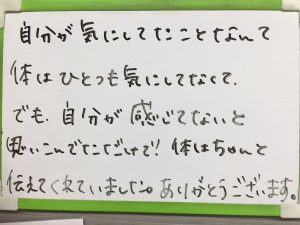 自分が気にしてたことなんて
体はひとつも気にしてなくて、
でも、自分が感じてないと
思いこんでただけで！体はちゃんと
伝えてくれていました。ありがとうございます。